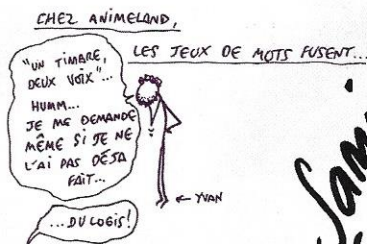 CHEZ ANIMELAND,
LES JEUX DE MOTS FUSENT...
"UN TIMBRE,
DEUX VOIX"...
HUMM...
JE ME DEMANDE
MÊME SI JE NE
L'AI PAS DÉJA
FAIT...
← YVAN
...DU LOGIS!